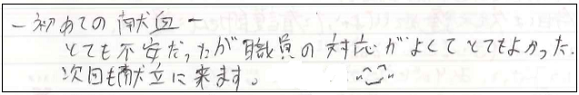 －初めての献血－
とても不安だったが職員の対応がよくてとてもよかった。
次回も献血に来ます。